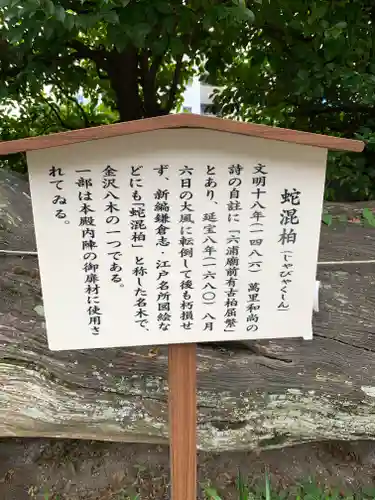 蛇混柏(じゃびゃくしん)
文明十八年(一四八六)萬里和尚の
詩の自註に「六浦廟前有古柏屈繁」
とあり、延宝八年(一六八〇)八月
六日の大風に転倒して後も朽損せ
ず、新編鎌倉志・江戸名所図絵な
どにも「蛇混柏」と称した名木で、
金沢八木の一つである。
一部は本殿内陣の御扉材に使用さ
れてゐる。